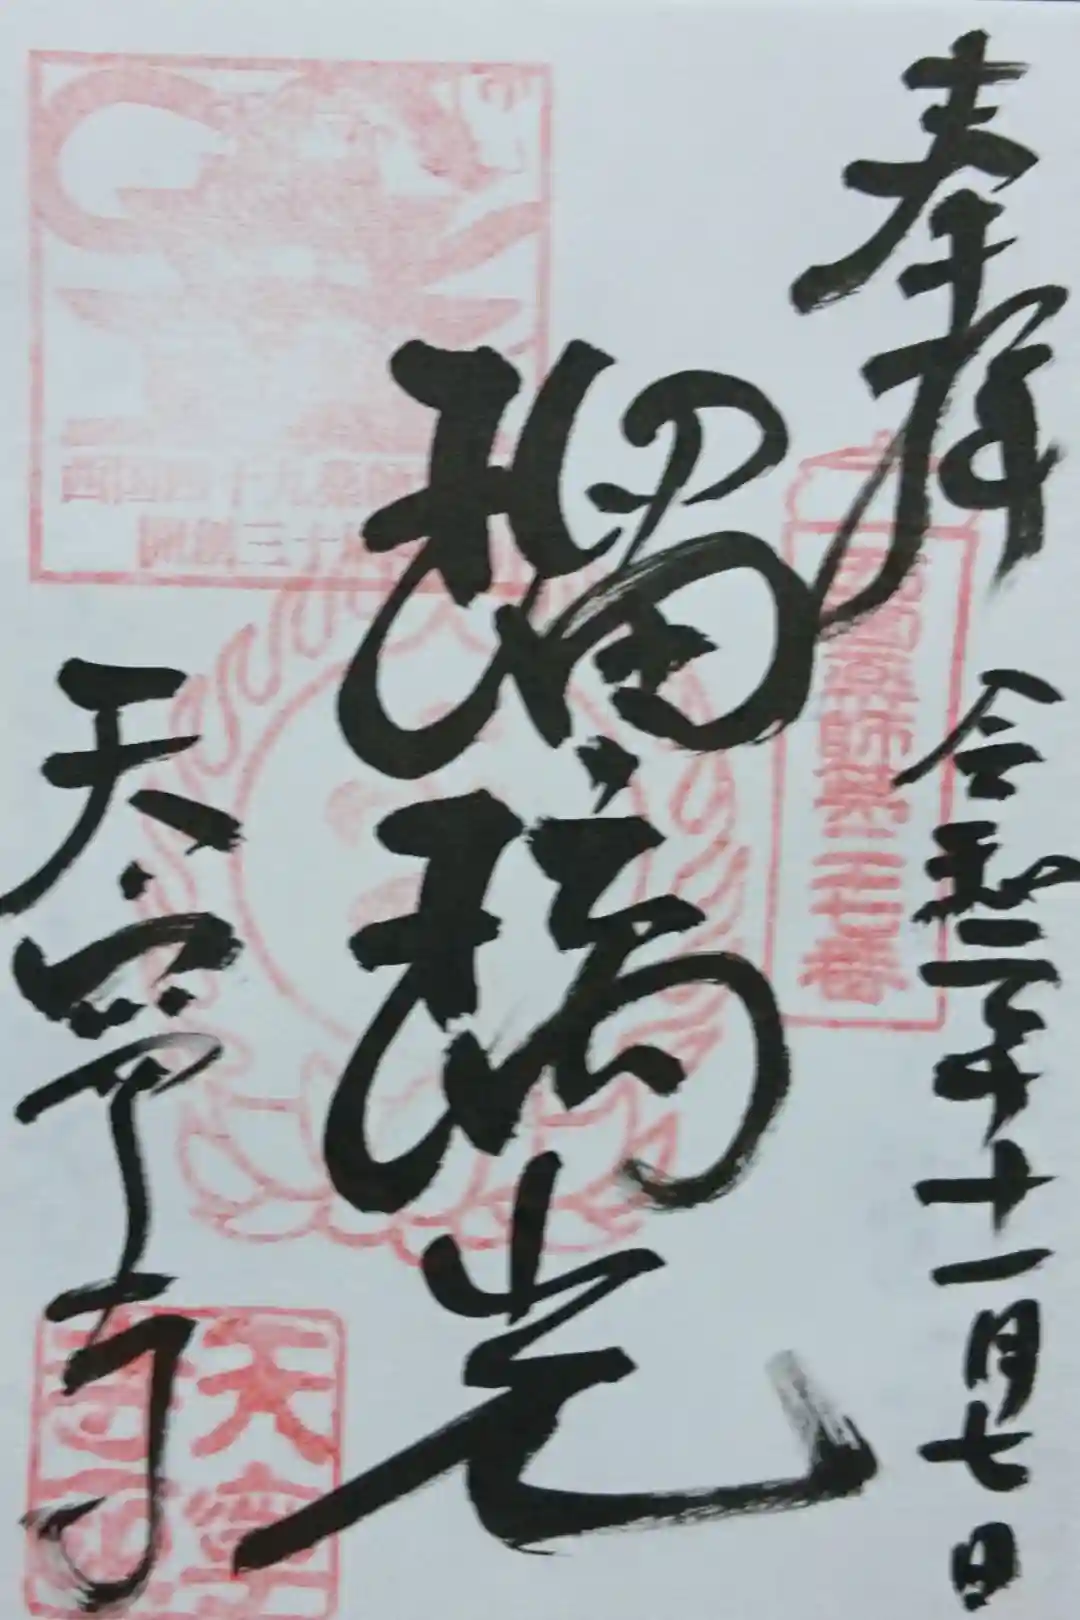 奉拝
令和二年十一月七日
西国薬師第二十七番
瑠璃光
西国四十九薬師
天寧寺
天寧寺印